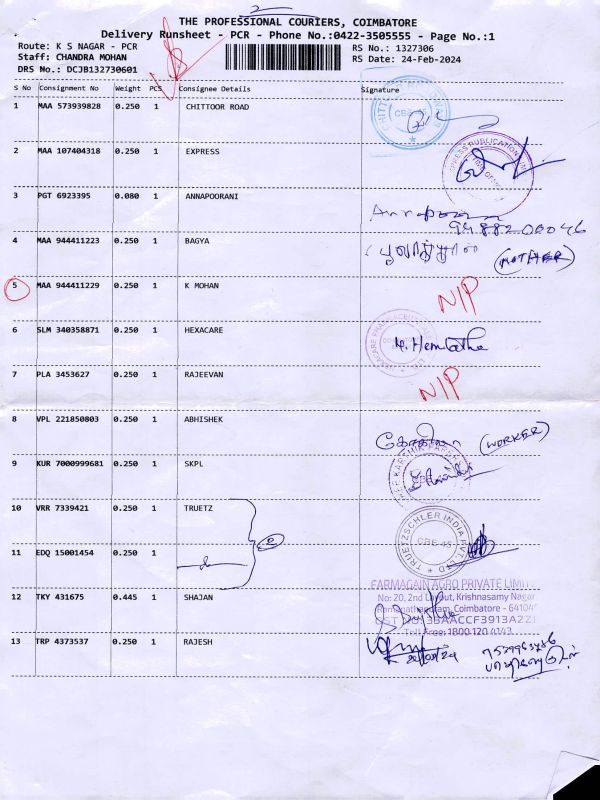 2
THE PROFESSIONAL COURIERS, COIMBATORE
Delivery Runsheet - PCR - Phone No.:0422-3505555 - Page No.:1
Route: K S NAGAR - PCR
RS No.: 1327306
Staff: CHANDRA MOHAN
RS Date: 24-Feb-2024
DRS No.: DCJB132730601
S No Consignment No Weight PCS Consignee Details Signature
1 MAA 573939828 0.250 1 CHITTOOR ROAD
CBE-45
2 MAA 107404318 0.250 1 EXPRESS
3 PGT 6923395 0.080 1 ANNAPOORANI
4 MAA 944411223 0.250 1 BAGYA
(MOTHER)
5 MAA 944411229 0.250 1 K MOHAN N/P
6 SLM 340358871 0.250 1 HEXACARE
M. Hemlatha
7 PLA 3453627 0.250 1 RAJEEVAN N/P
8 VPL 221850803 0.250 1 ABHISHEK
(WORKER)
9 KUR 7000999681 0.250 1 SKPL
10 VRR 7339421 0.250 1 TRUETZ
TRUETZSCHLER INDIA PVT. LTD
CBE-45
11 EDQ 15001454 0.250 1
FARMAGAIN AGRO PRIVATE LIMITE
12 TKY 431675 0.445 1 SHAJAN
No: 20, 2nd Layout, Krishnasamy Nagar
Ramanathapuram, Coimbatore - 64104
Toll Free: 1800 120 4143
13 TRP 4373537 0.250 1 RAJESH